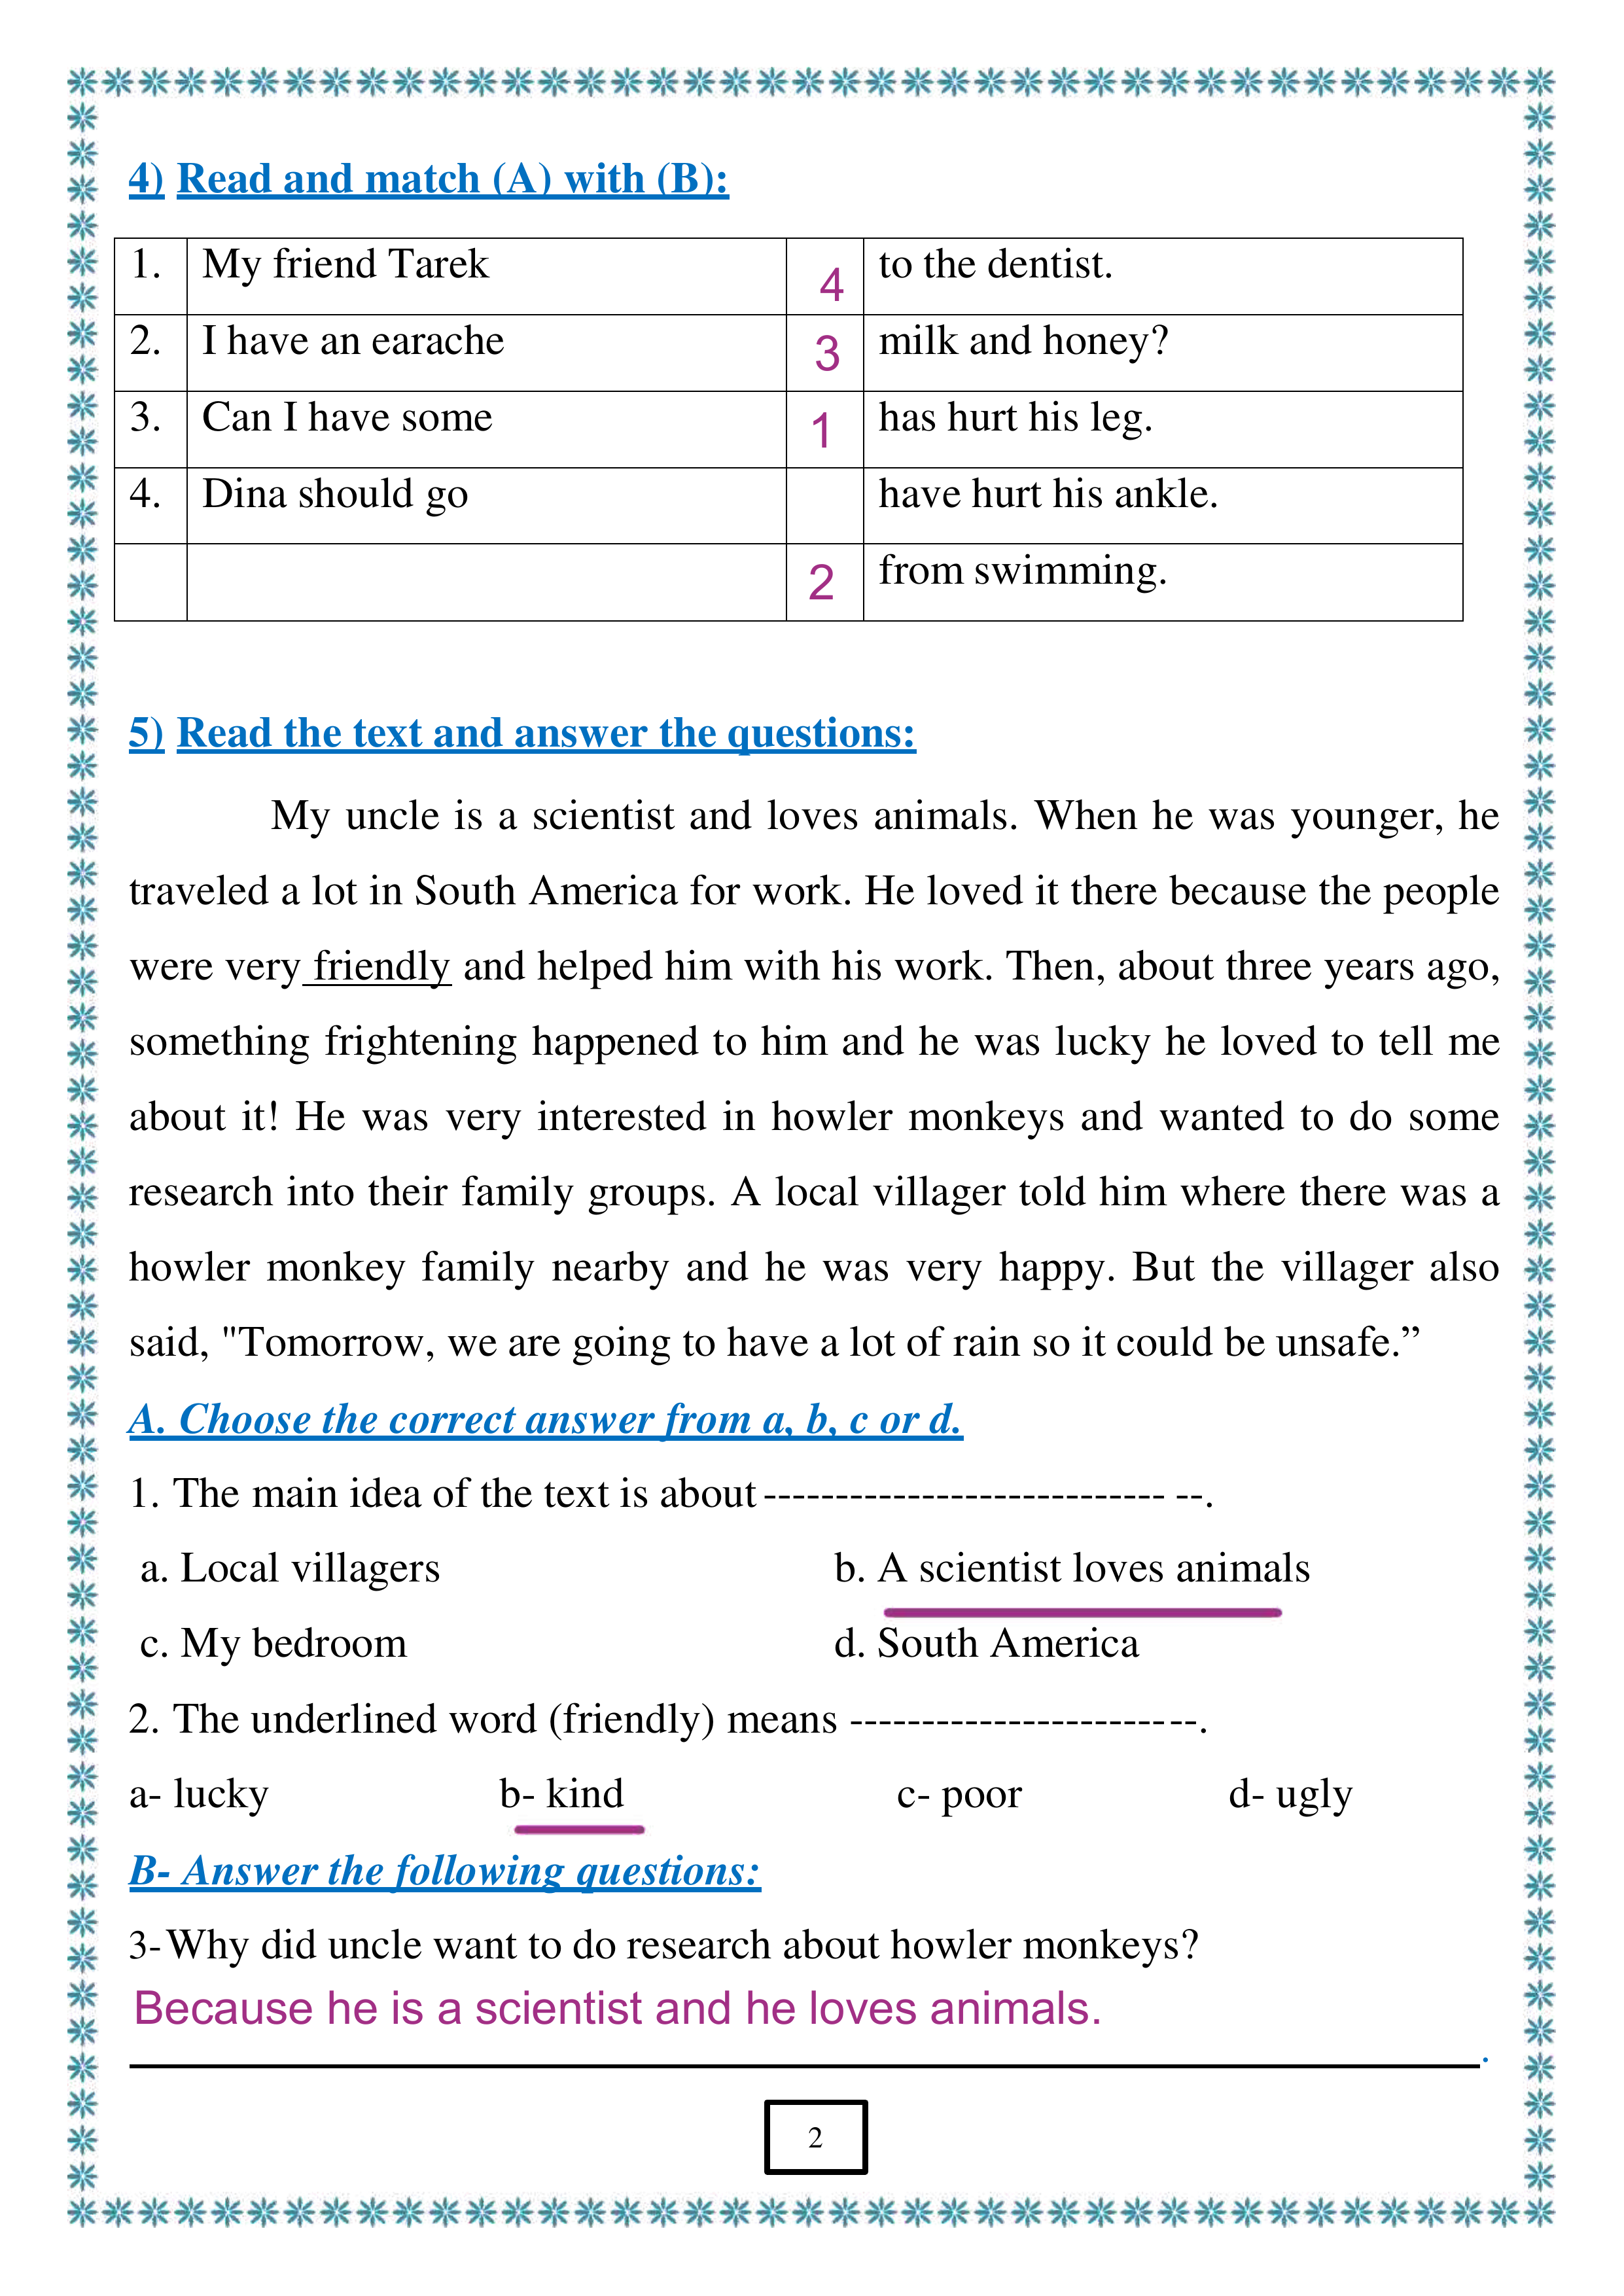 4) Read and match (A) with (B):
1. My friend Tarek 4 to the dentist.
2. I have an earache 3 milk and honey?
3. Can I have some 1 has hurt his leg.
4. Dina should go have hurt his ankle.
2 from swimming.
5) Read the text and answer the questions:
My uncle is a scientist and loves animals. When he was younger, he
traveled a lot in South America for work. He loved it there because the people
were very friendly and helped him with his work. Then, about three years ago,
something frightening happened to him and he was lucky he loved to tell me
about it! He was very interested in howler monkeys and wanted to do some
research into their family groups. A local villager told him where there was a
howler monkey family nearby and he was very happy. But the villager also
said, "Tomorrow, we are going to have a lot of rain so it could be unsafe.”
A. Choose the correct answer from a, b, c or d.
1. The main idea of the text is about ---------------------------- --.
a. Local villagers b. A scientist loves animals
c. My bedroom d. South America
2. The underlined word (friendly) means ------------------------.
a- lucky b- kind c- poor d- ugly
B- Answer the following questions:
3- Why did uncle want to do research about howler monkeys?
Because he is a scientist and he loves animals.
.
2